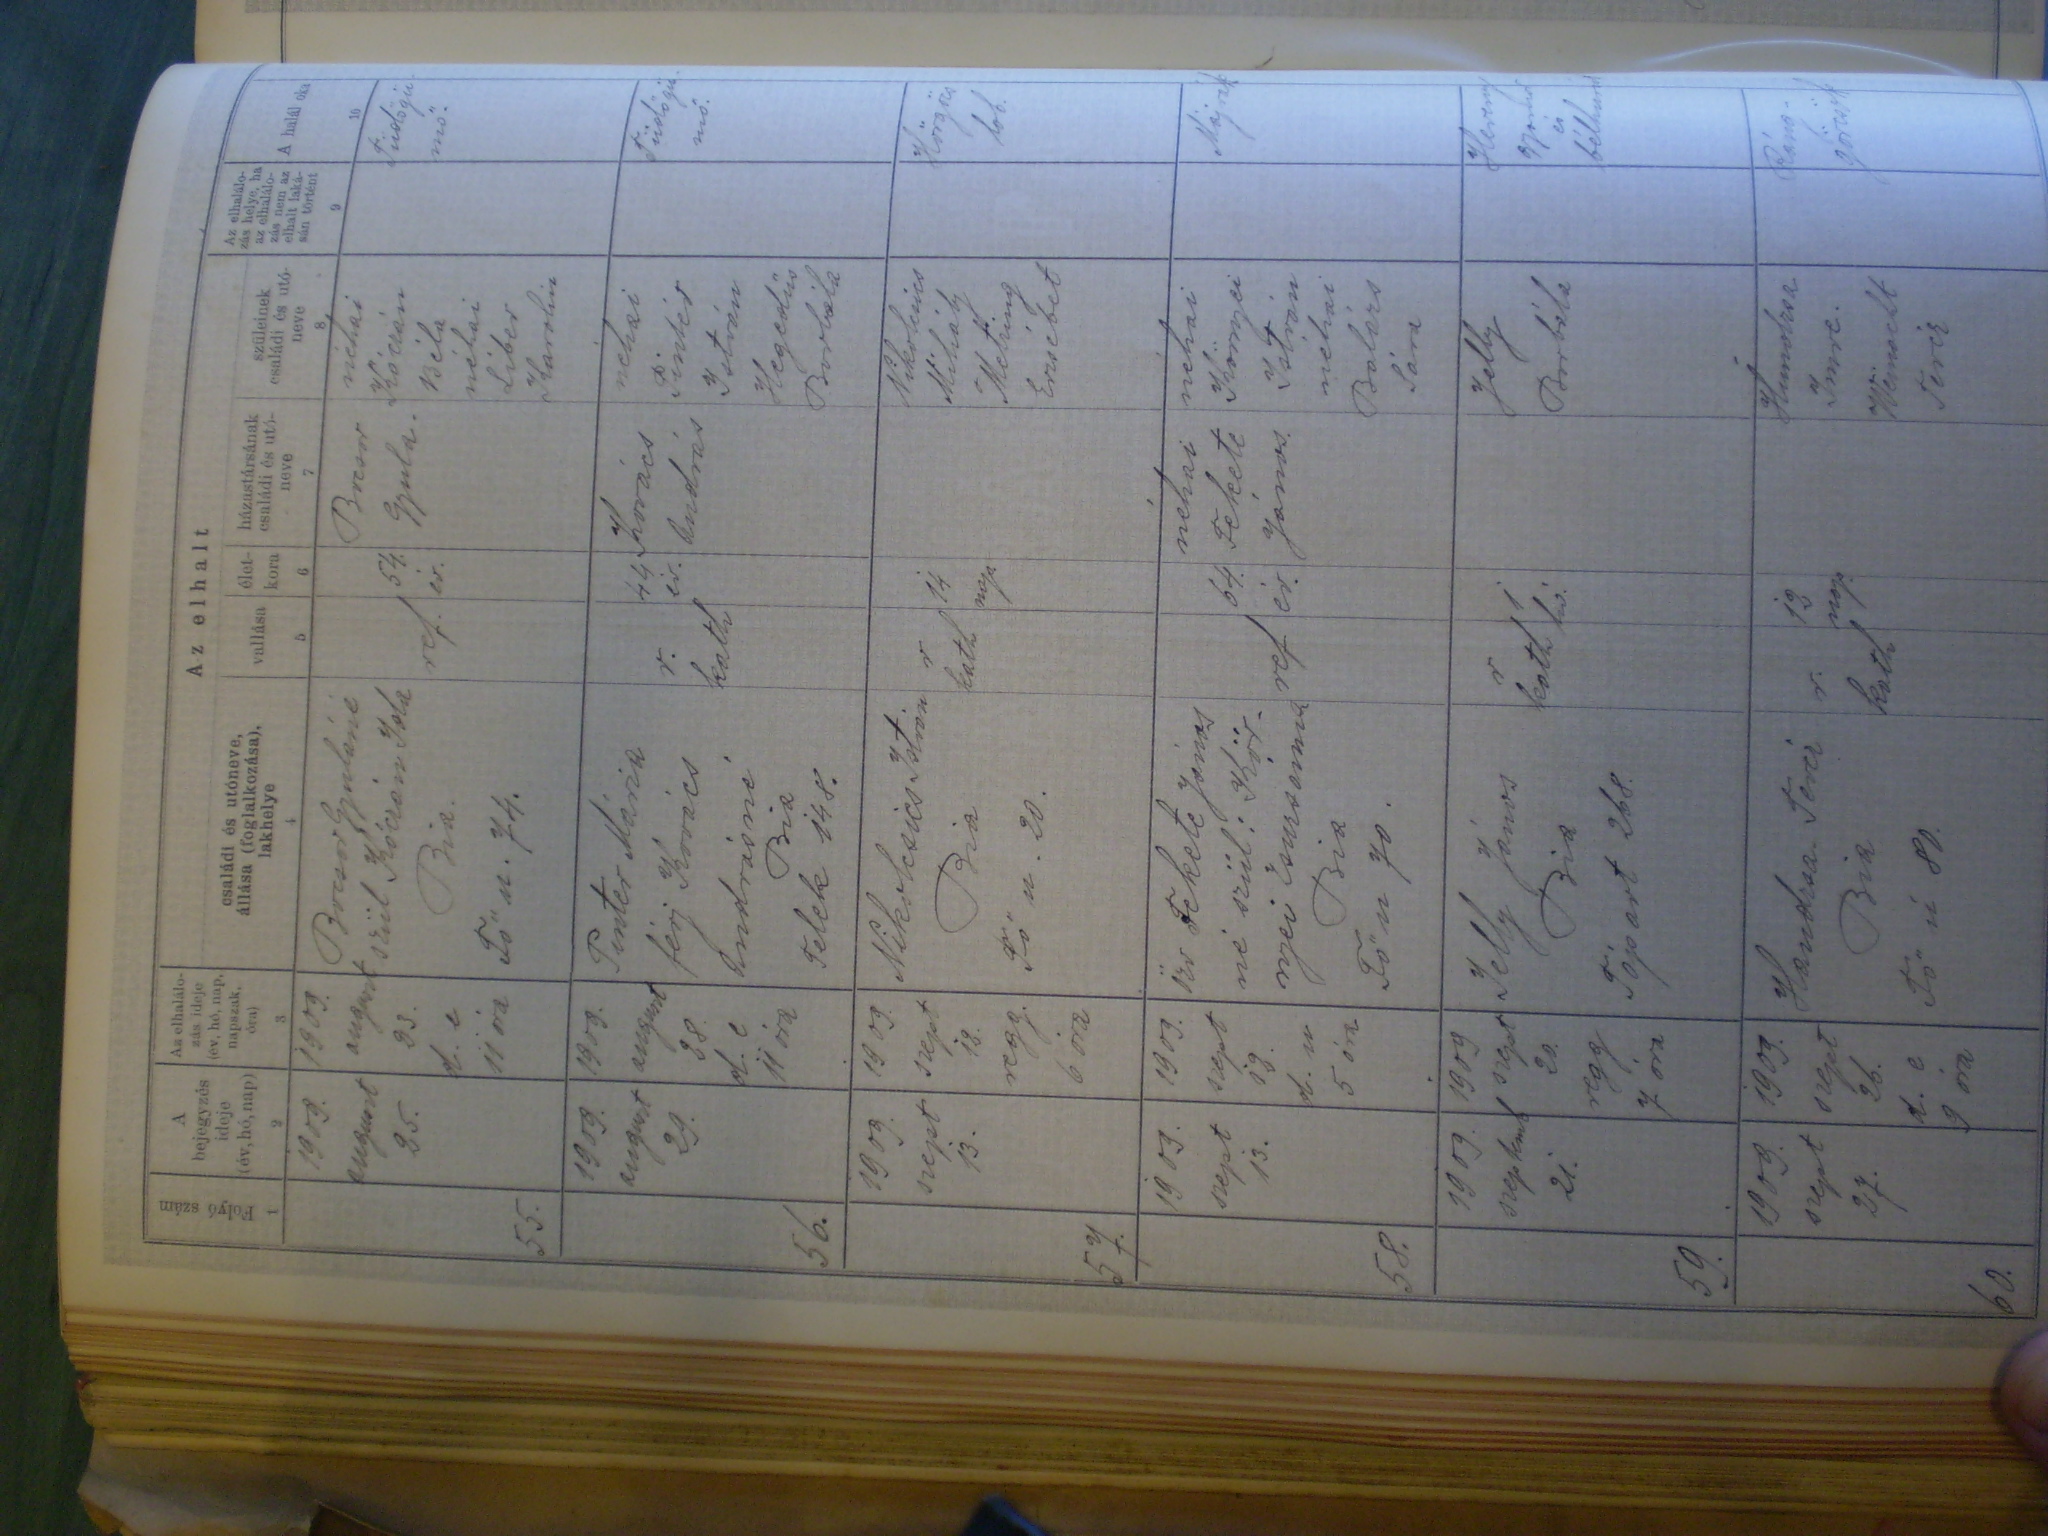 Az elhalt
Folyó szám
A bejegyzés ideje (év, hó, nap)
Az elhalálo-
zás ideje
(év, hó, nap,
napszak,
óra)
családi és utóneve,
állása (foglalkozása),
lakhelye
vallása
élet-
kora
házastársának
családi és utó-
neve
szüleinek
családi és utó-
neve
Az elhalálo-
zás helye, ha
az elhalálo-
zás nem az
elhalt laká-
sán történt
A halál oka
1 2 3 4 5 6 7 8 9 10
55.
1909.
august
25.
1909.
august
23.
d. e
11 óra
Bocsor Gyuláné
szül Kócián Ida
Bia.
Fő u. 74.
ref.
54.
év.
Bocsor
Gyula.
néhai
Kócián
Béla
néhai
Liber
Karolin
Tüdőgü-
mő.
56.
1909.
august
29.
1909.
august
28.
d. e
11 óra
Pinter Mária
férj Kovács
Andrásné
Bia
Telek 148.
r.
kath
44
év.
Kovács
András
néhai
Pintér
István
Hegedüs
Borbála
Tüdőgü-
mő.
57.
1909.
szept
13.
1909.
szept
12.
regg.
6 óra
Nikolsics István
Bia
Fő u. 20.
r
kath
14
nap
Nikolsics
Mihály
Metzing
Erzsébet
58.
1909.
szept
13.
1909.
szept
12.
d. u
5 óra
özv Fekete János
né szül: Kör-
nyei Zsuzsanna
Bia
Fő u 70.
ref
64.
év.
néhai
Fekete
János.
néhai
Környei
István
néhai
Balázs
Sára
59.
1909.
21.
1909
szept
20.
regg
7 óra
Jelly János
Bia
Tópart 268.
r
kath
1
hó.
Jelly
Borbála
és
60.
1909.
szept
27.
1909.
szept
26.
d. e
9 óra
Handzsa Teréz
Bia
Fő u 80.
r.
kath
12
nap.
Handzsa
Imre.
Teréz